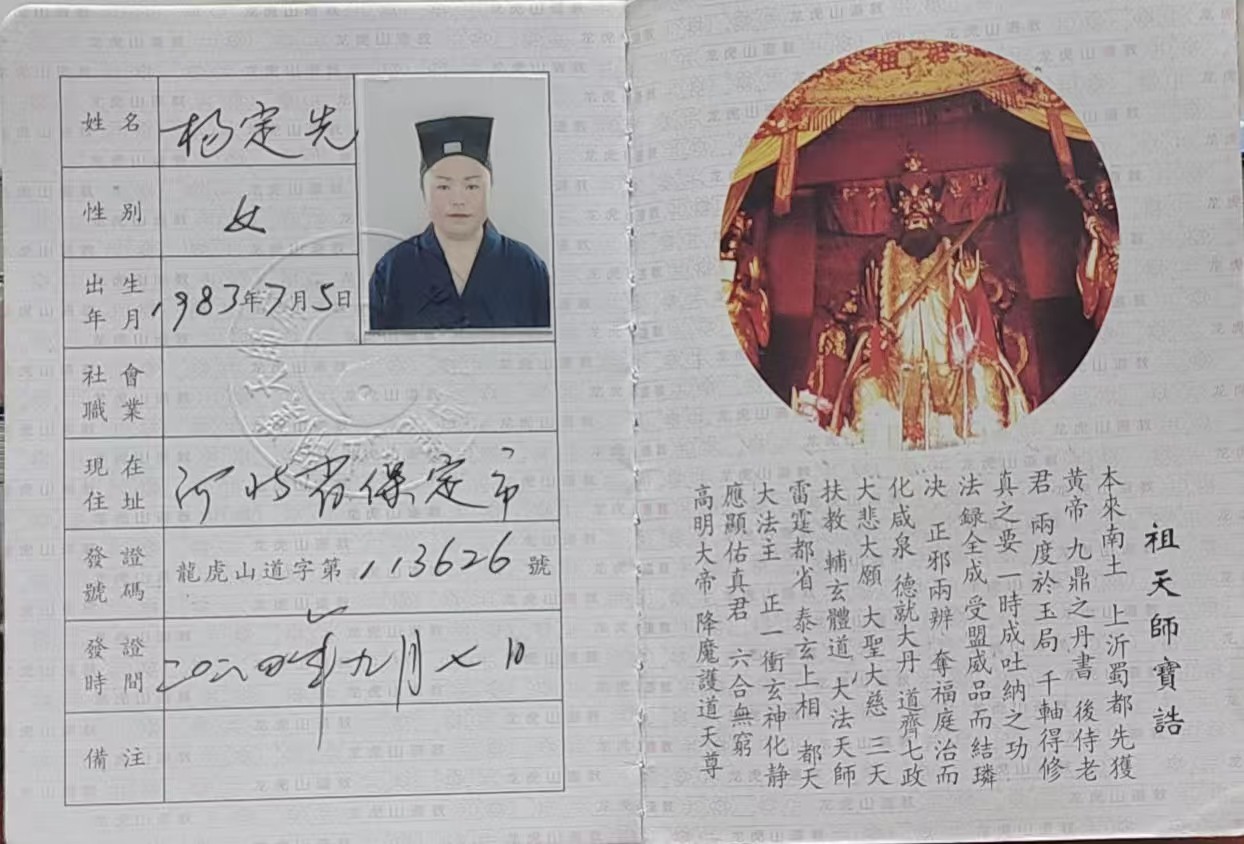 姓名 杨定先
性别 女
出生年月 1983年7月5日
社會職業
現在住址 河北省保定市
發證號碼 龍虎山道字第113626號
發證時間
九月七日
備注
祖天師寶誥
本來南土 上沂蜀都先獲
黄帝 九鼎之丹書 後侍老
君 兩度於玉局 千軸得修
真之要 一時成吐納之功
法録全成 受盟威品而結璘
决 正邪兩辨 奪福庭治而
化咸泉 德就大丹 道齊七政
大悲大願 大聖大慈 三天
扶教 輔玄體道 大法天師
雷霆都省 泰玄上相 都天
大法主 正一衝玄神化静
應顯佑真君 六合無窮
高明大帝 降魔護道天尊
龙虎山道教